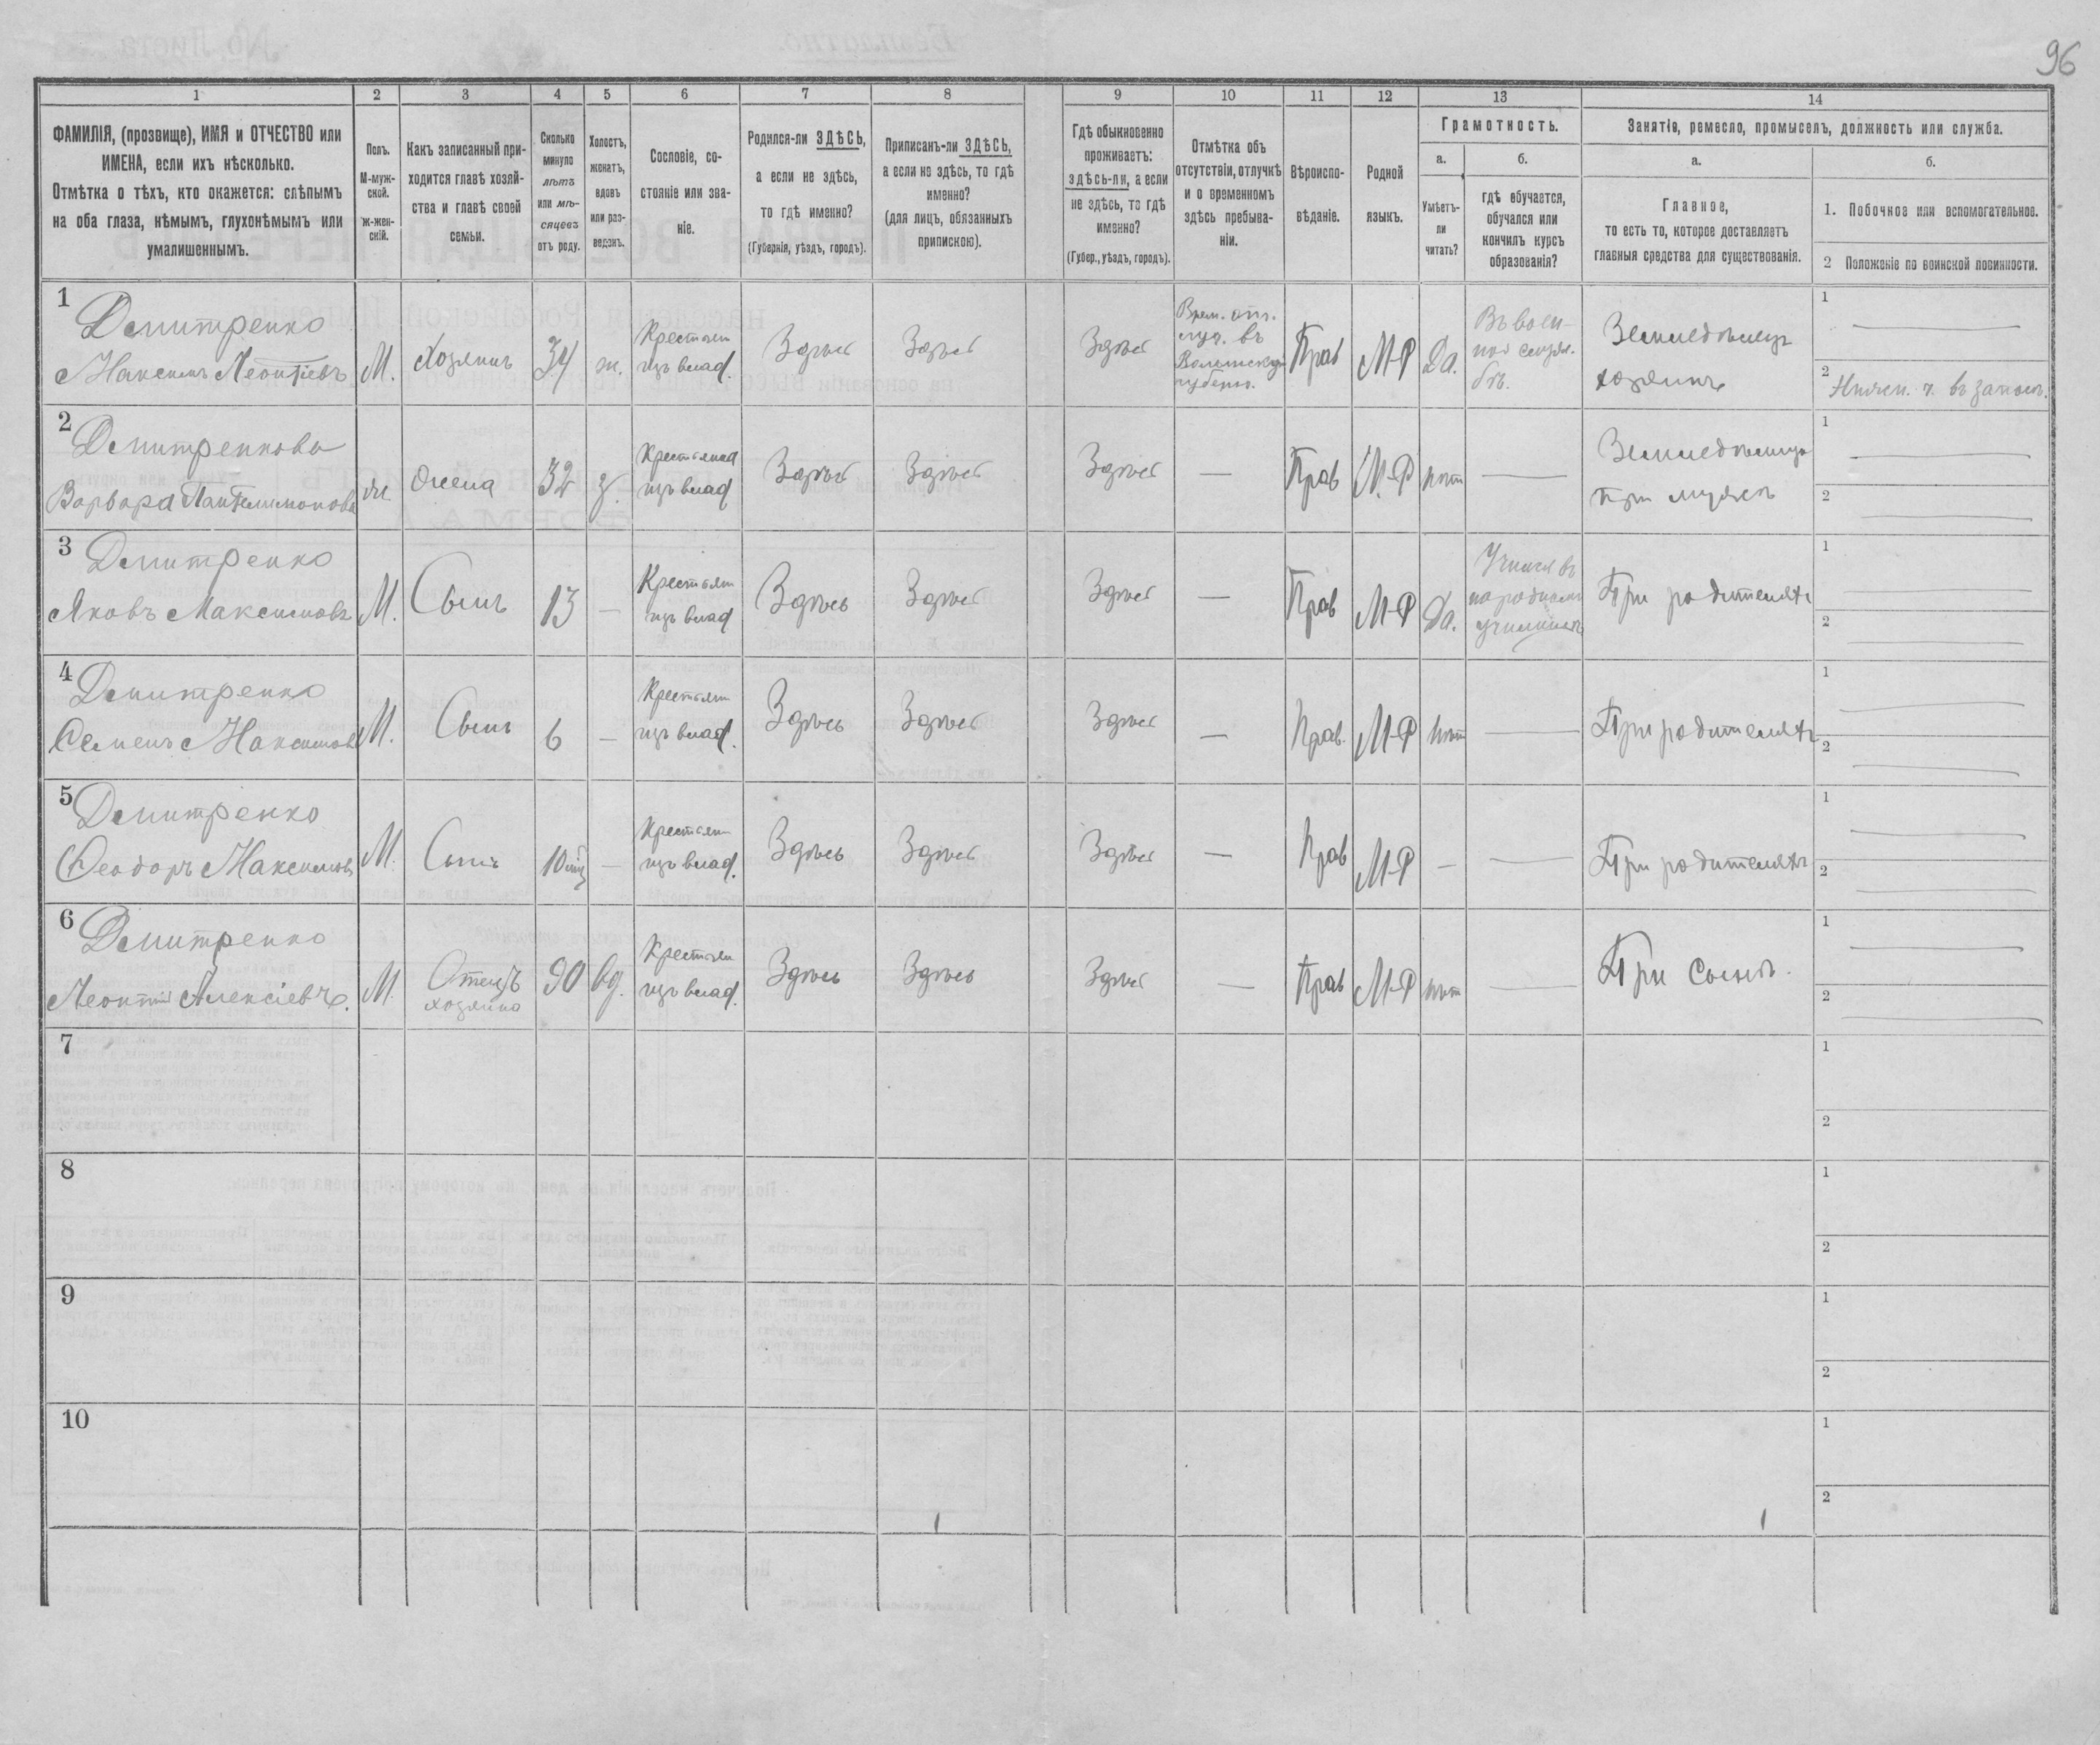 96
1
2
3
4
5
6
7
8
9
10
11
12
13
14
ФАМИЛІЯ, (прозвище), ИМЯ и ОТЧЕСТВО или
ИМЕНА, если ихъ нѣсколько.
Отмѣтка о тѣхъ, кто окажется: слѣпымъ
на оба глаза, нѣмымъ, глухонѣмымъ или
умалишеннымъ.
Полъ.
М-муж-
ской.
Ж-жен-
скій.
Какъ записанный при-
ходится главѣ хозяй-
ства и главѣ своей
семьи.
Сколько
минуло
лѣтъ
или мѣ-
сяцевъ
отъ роду.
Холостъ,
женатъ,
вдовъ
или раз-
веденъ.
Сословіе, со-
стояніе или зва-
ніе.
Родился-ли ЗДѢСЬ,
а если не здѣсь,
то гдѣ именно?
(Губернія, уѣздъ, городъ).
Приписанъ-ли ЗДѢСЬ,
а если не здѣсь, то гдѣ
именно?
(для лицъ, обязанныхъ
припискою).
Гдѣ обыкновенно
проживаетъ:
здѣсь-ли, а если
не здѣсь, то гдѣ
именно?
(Губер., уѣздъ, городъ).
Отмѣтка объ
отсутствіи, отлучкѣ
и о временномъ
здѣсь пребыва-
ніи.
Вѣроиспо-
вѣданіе.
Родной
языкъ.
Грамотность.
а.
Умѣетъ-
ли
читать?
б.
гдѣ обучается,
обучался или
кончилъ курсъ
образованія?
Занятіе, ремесло, промыселъ, должность или служба.
а.
Главное,
то есть то, которое доставляетъ
главныя средства для существованія.
б.
1. Побочное или вспомогательное.
2 Положеніе по воинской повинности.
1
Демитренко
Максимъ Леонтіевъ
М.
Хозяинъ
34
ж.
Крестьян
изъ влад.
Здѣсь
Здѣсь
Здѣсь
Врем. отлуч. въ
Волынскую
губерн.
Прав
М-Р
Да.
Въ воен-
ной служ-
бѣ.
Земледѣлецъ
хозяинъ
1
2 Нижн. ч. въ запасѣ.
2
Демитренкова
Варвара Пантелимонова
ж
жена
32
з.
Крестьянка
изъ влад
Здѣсь
Здѣсь
Здѣсь
—
Прав
М-Р
нѣт
—
Земледѣлица
при мужѣ
1
2
3
Демитренко
Яковъ Максимовъ
М.
Сынъ
13
—
Крестьян
изъ влад
Здѣсь
Здѣсь
Здѣсь
—
Прав
М-Р
Да.
Учился въ
народномъ
училищѣ
При родителяхъ
1
2
4
Демитренко
Семенъ Максимов
М.
Сынъ
6
—
Крестьян
изъ влад.
Здѣсь
Здѣсь
Здѣсь
—
Прав.
М-Р
нѣт
—
При родителяхъ
1
2
5
Демитренко
Ѳеодоръ Максимов
М.
Сынъ
10 мѣ
—
Крестьян
изъ влад.
Здѣсь
Здѣсь
Здѣсь
—
Прав
М-Р
—
—
При родителяхъ
1
2
6
Демитренко
Леонтій Алексіевъ.
М.
Отецъ
хозяина
90
вд.
Крестьян
изъ влад.
Здѣсь
Здѣсь
Здѣсь
—
Прав
М-Р
нѣт
—
При сынѣ.
1
2
7
1
2
8
1
2
9
1
2
10
1
2